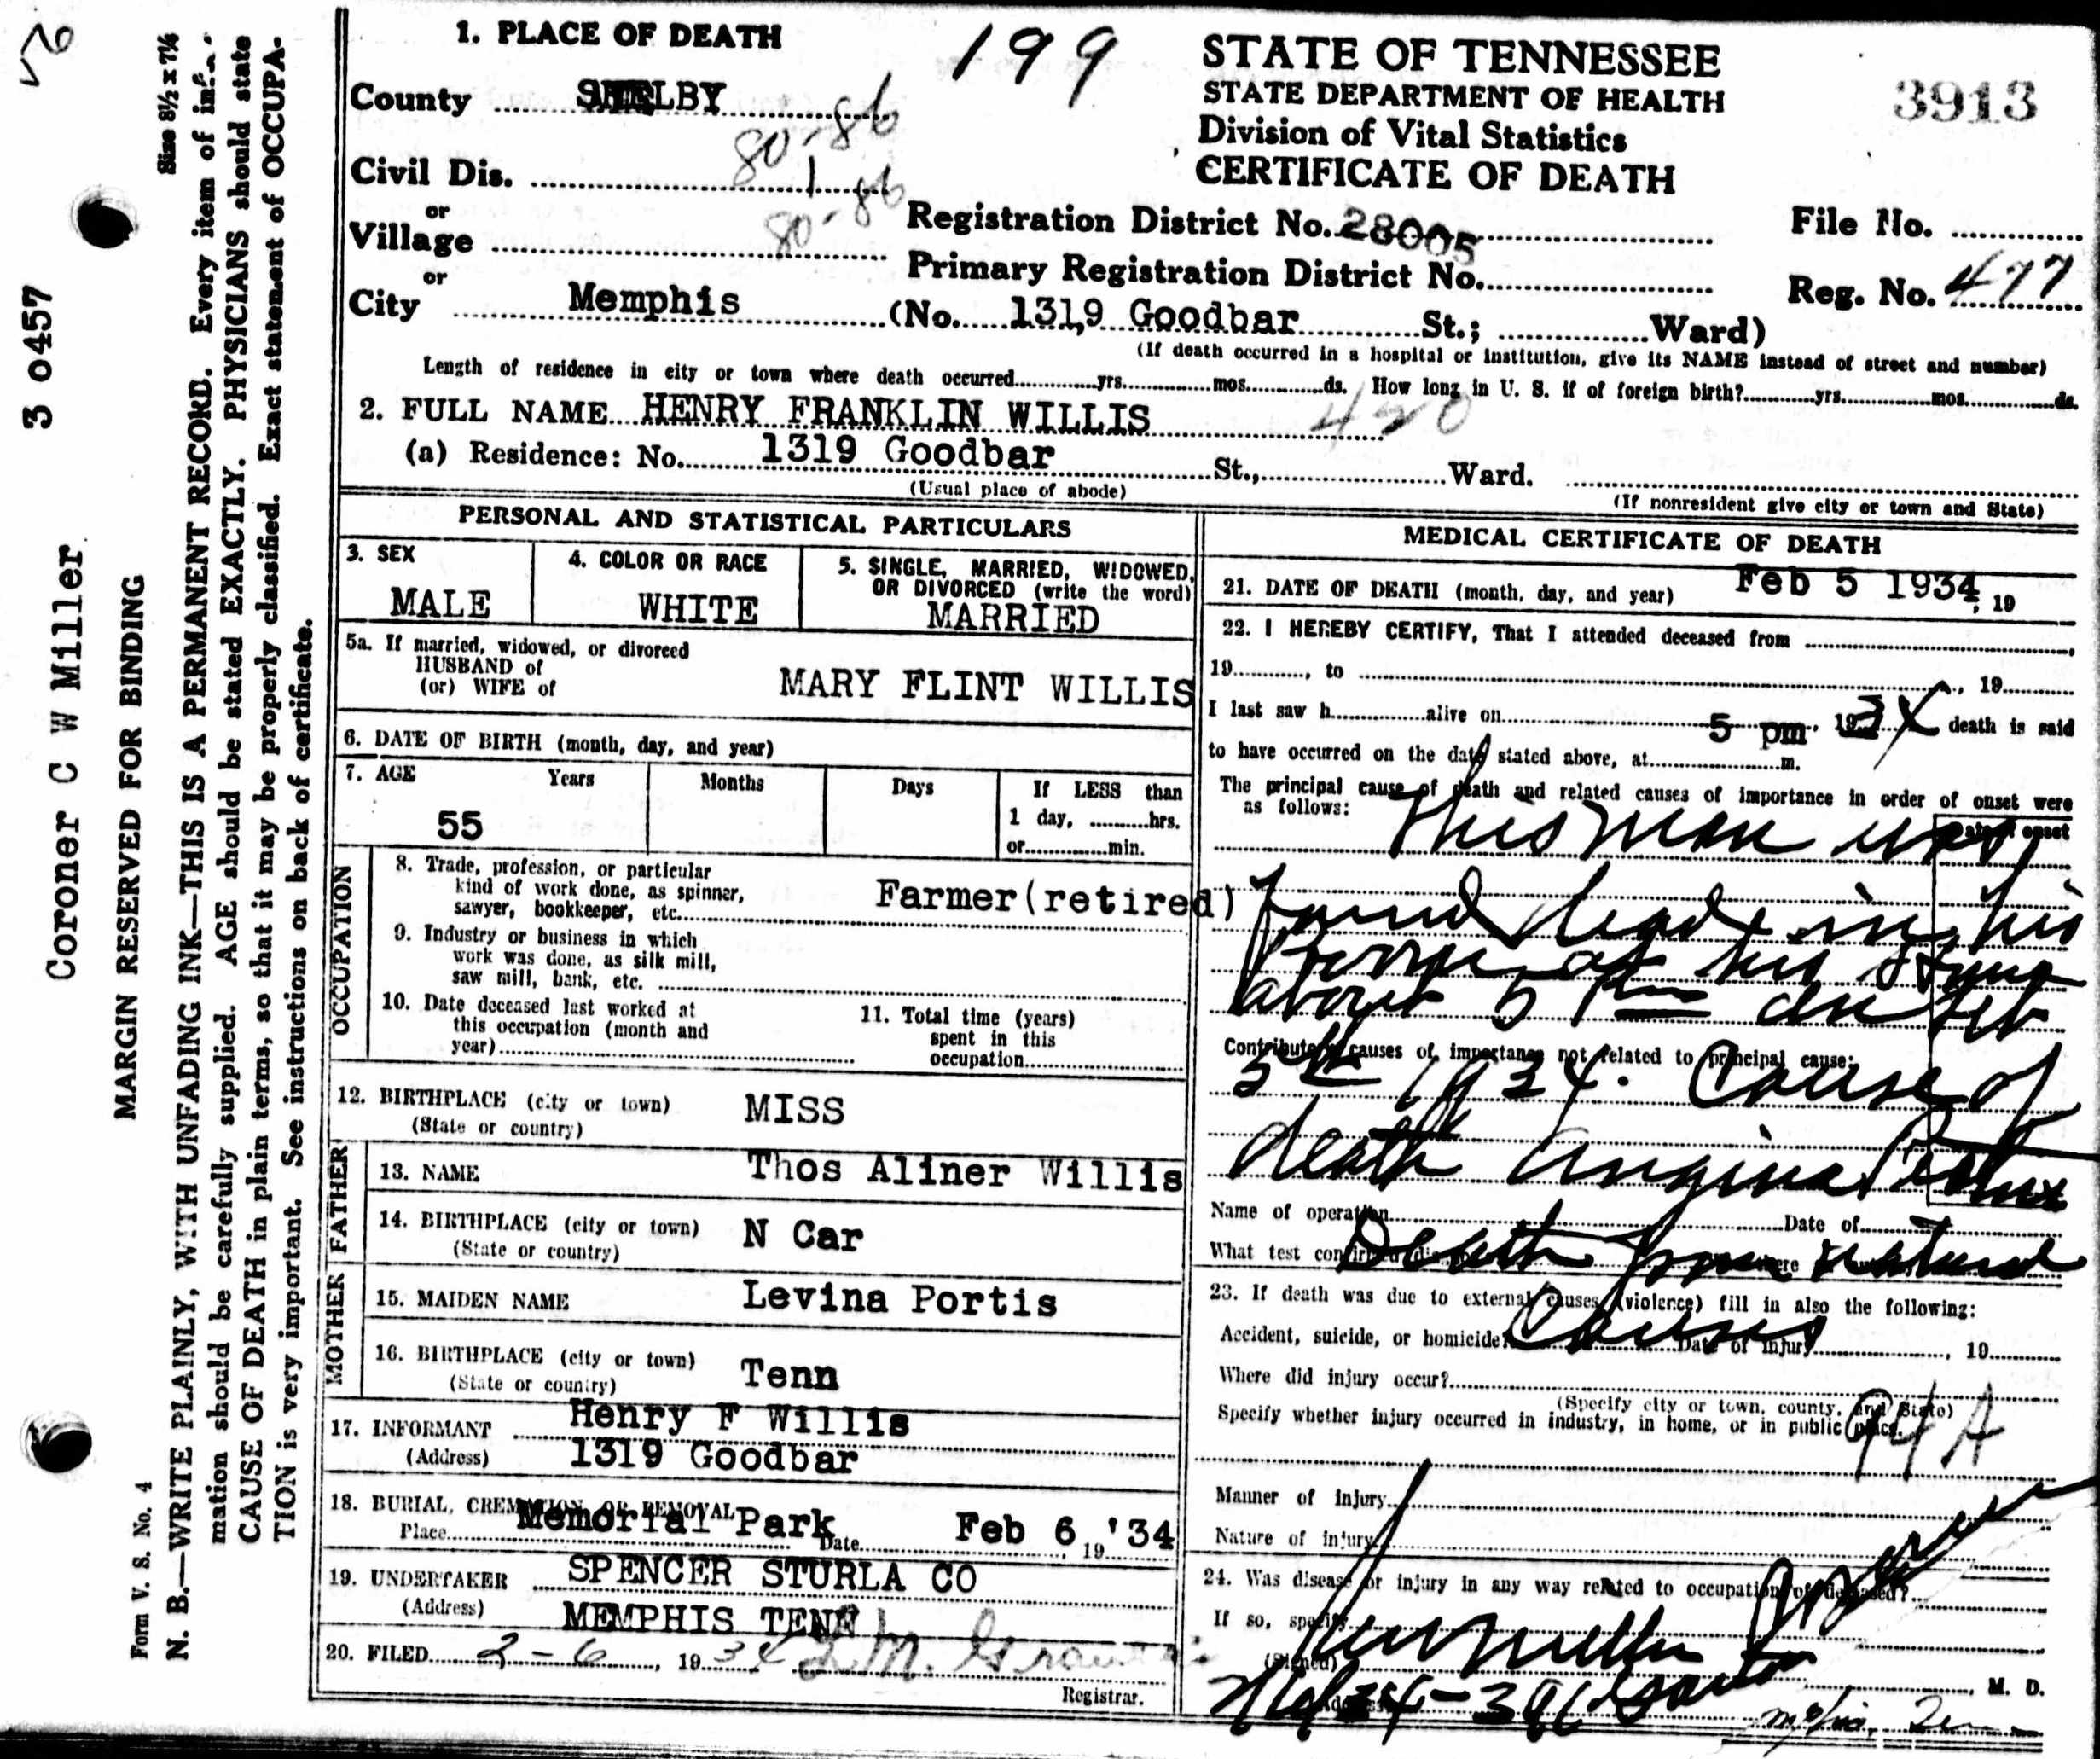 1. PLACE OF DEATH
199
STATE OF TENNESSEE
STATE DEPARTMENT OF HEALTH
Division of Vital Statistics
CERTIFICATE OF DEATH
3913
County SHELBY
80-86
Civil Dis. 1
or
Village
80-86
Registration District No. 28005
File No.
or
Primary Registration District No.
Reg. No. 477
City Memphis (No. 1319 Goodbar St.; Ward)
(If death occurred in a hospital or institution, give its NAME instead of street and number)
Length of residence in city or town where death occurred yrs. mos. ds. How long in U. S. if of foreign birth? yrs. mos. ds.
2. FULL NAME HENRY FRANKLIN WILLIS
420
(a) Residence: No. 1319 Goodbar St., Ward.
(Usual place of abode)
(If nonresident give city or town and State)
PERSONAL AND STATISTICAL PARTICULARS
3. SEX
MALE
4. COLOR OR RACE
WHITE
5. SINGLE, MARRIED, WIDOWED,
OR DIVORCED (write the word)
MARRIED
5a. If married, widowed, or divorced
HUSBAND of
(or) WIFE of
MARY FLINT WILLIS
6. DATE OF BIRTH (month, day, and year)
7. AGE Years Months Days If LESS than
1 day, hrs.
or min.
55
OCCUPATION
8. Trade, profession, or particular
kind of work done, as spinner,
sawyer, bookkeeper, etc.
Farmer(retired)
9. Industry or business in which
work was done, as silk mill,
saw mill, bank, etc.
10. Date deceased last worked at
this occupation (month and
year)
11. Total time (years)
spent in this
occupation
12. BIRTHPLACE (city or town)
(State or country)
MISS
FATHER
13. NAME Thos Aliner Willis
14. BIRTHPLACE (city or town)
(State or country)
N Car
MOTHER
15. MAIDEN NAME Levina Portis
16. BIRTHPLACE (city or town)
(State or country)
Tenn
17. INFORMANT Henry F Willis
(Address) 1319 Goodbar
18. BURIAL, CREMATION, OR REMOVAL
Place Memorial Park Date Feb 6, 19 '34
19. UNDERTAKER SPENCER STURLA CO
(Address) MEMPHIS TENN
20. FILED 2-6, 1934 L.M. Graves
Registrar.
MEDICAL CERTIFICATE OF DEATH
21. DATE OF DEATH (month, day, and year) Feb 5 1934, 19
22. I HEREBY CERTIFY, That I attended deceased from
19, to , 19
I last saw h alive on 1934 death is said
5 pm
to have occurred on the date stated above, at m.
The principal cause of death and related causes of importance in order of onset were
as follows:
Date of onset
This man was
found dead in his
at his home
about 5 Pm on Feb
Contributory causes of importance not related to principal cause:
5th 1934. Cause of
death Angina Pectoris
Name of operation Date of
What test confirmed
Death from natural
23. If death was due to external causes (violence) fill in also the following:
Causes
Accident, suicide, or homicide? Date of injury , 19
Where did injury occur?
(Specify city or town, county, and State)
Specify whether injury occurred in industry, in home, or in public place.
94A
Manner of injury
Nature of injury
24. Was disease or injury in any way related to occupation of deceased?
If so, specify
(Signed)
M. D.
Size 8½ x 7¼
3 0457
Coroner C W Miller
MARGIN RESERVED FOR BINDING
Form V. S. No. 4
N. B.—WRITE PLAINLY, WITH UNFADING INK—THIS IS A PERMANENT RECORD. Every item of infor-
mation should be carefully supplied. AGE should be stated EXACTLY. PHYSICIANS should state
CAUSE OF DEATH in plain terms, so that it may be properly classified. Exact statement of OCCUPA-
TION is very important. See instructions on back of certificate.